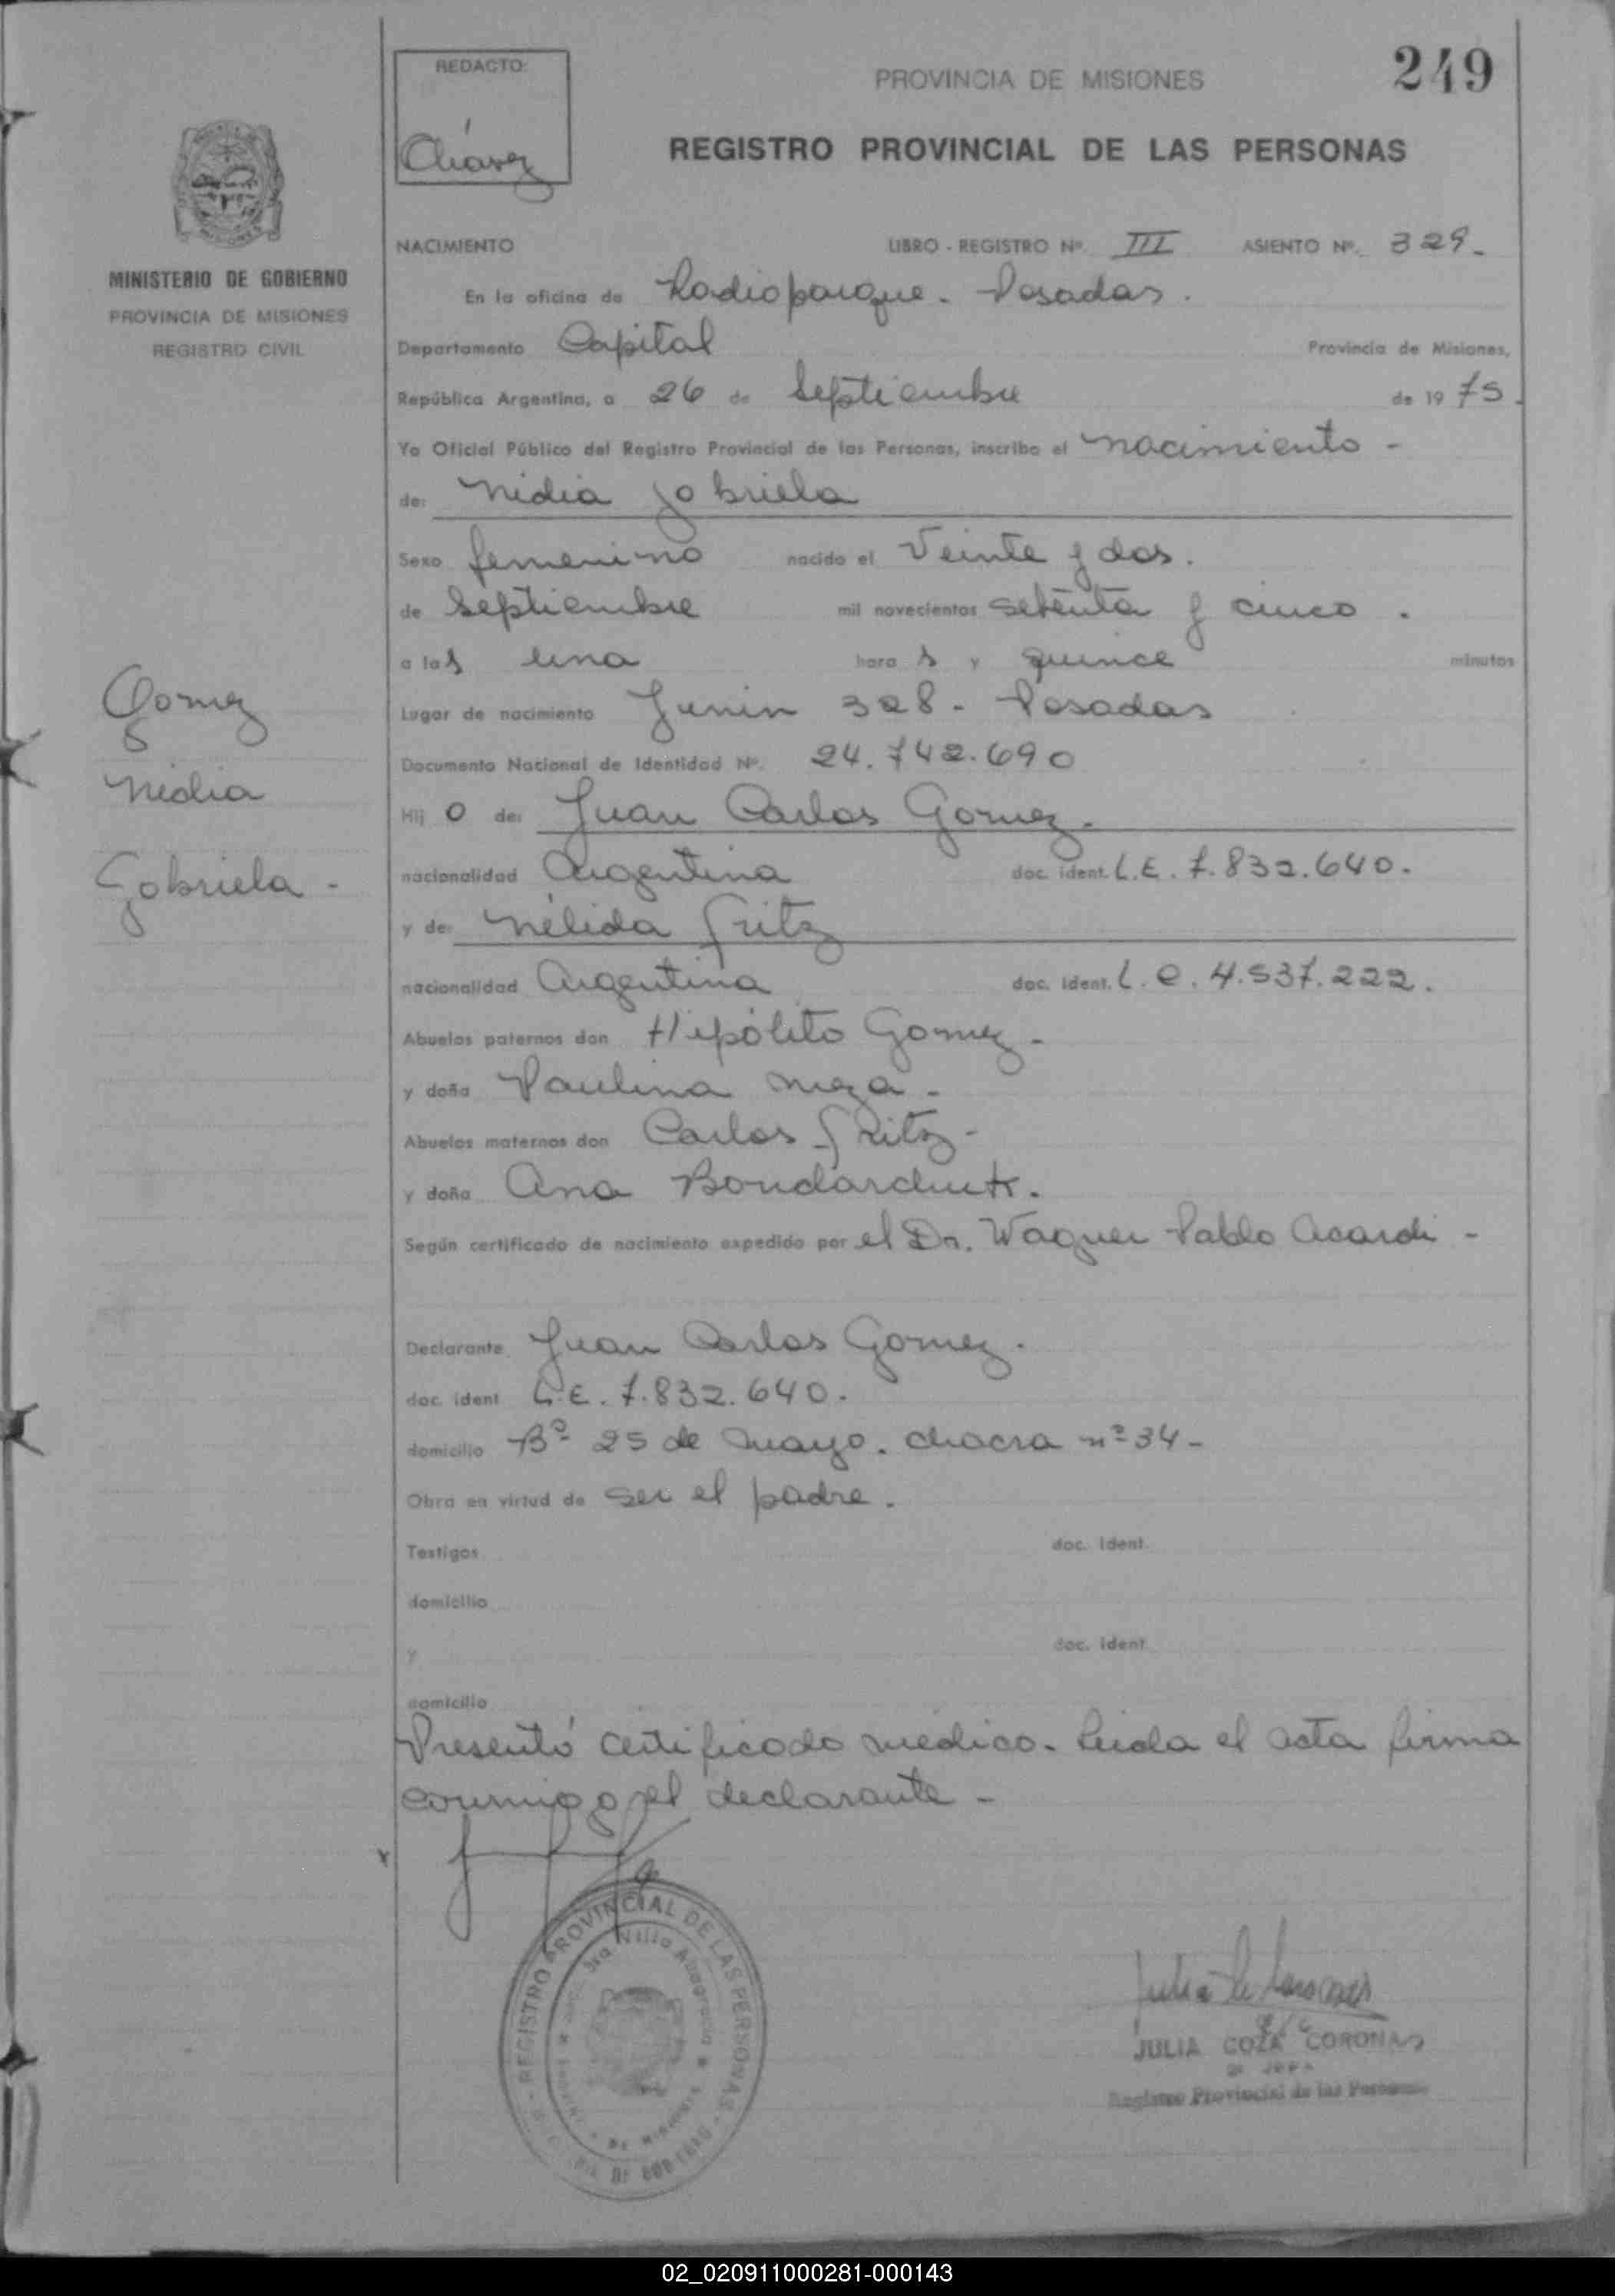 249
REDACTO:
Chávez
PROVINCIA DE MISIONES
REGISTRO PROVINCIAL DE LAS PERSONAS
MINISTERIO DE GOBIERNO
PROVINCIA DE MISIONES
REGISTRO CIVIL
NACIMIENTO LIBRO - REGISTRO Nº. III ASIENTO Nº. 329.-
En la oficina de Radioparque. Posadas.
Departamento Capital Provincia de Misiones,
República Argentina, a 26 de Septiembre de 1975.
Yo Oficial Público del Registro Provincial de las Personas, inscribo el nacimiento -
de: Nidia Gabriela
Sexo femenino nacido el Veinte y dos.
de Septiembre mil novecientos setenta y cinco.
a las una hora s y quince minutos
Lugar de nacimiento Junin 328 - Posadas
Documento Nacional de Identidad Nº. 24.742.690
Hij o de: Juan Carlos Gomez.
nacionalidad Argentina doc. ident. L.E. 7.832.640.
y de: Nélida Fritz
nacionalidad Argentina doc. ident. L.C. 4.537.222.
Abuelos paternos don Hipólito Gomez -
y doña Paulina Meza -
Abuelos maternos don Carlos Fritz -
y doña Ana Bondarchuk.
Según certificado de nacimiento expedido por el Dr. Wagner Pablo Acardi -
Declarante Juan Carlos Gomez.
doc. ident L.E. 7.832.640.
domicilio Bº 25 de Mayo. chacra nº 34 -
Obra en virtud de ser el padre.
Testigos doc. ident.
domicilio
y doc. ident.
domicilio
Presentó certificado médico. Leida el acta firma
conmigo el declarante -
Gomez
Nidia
Gabriela -
REGISTRO PROVINCIAL DE LAS PERSONAS
JULIA COZA CORONAS
Registro Provincial de las Personas
02_020911000281-000143